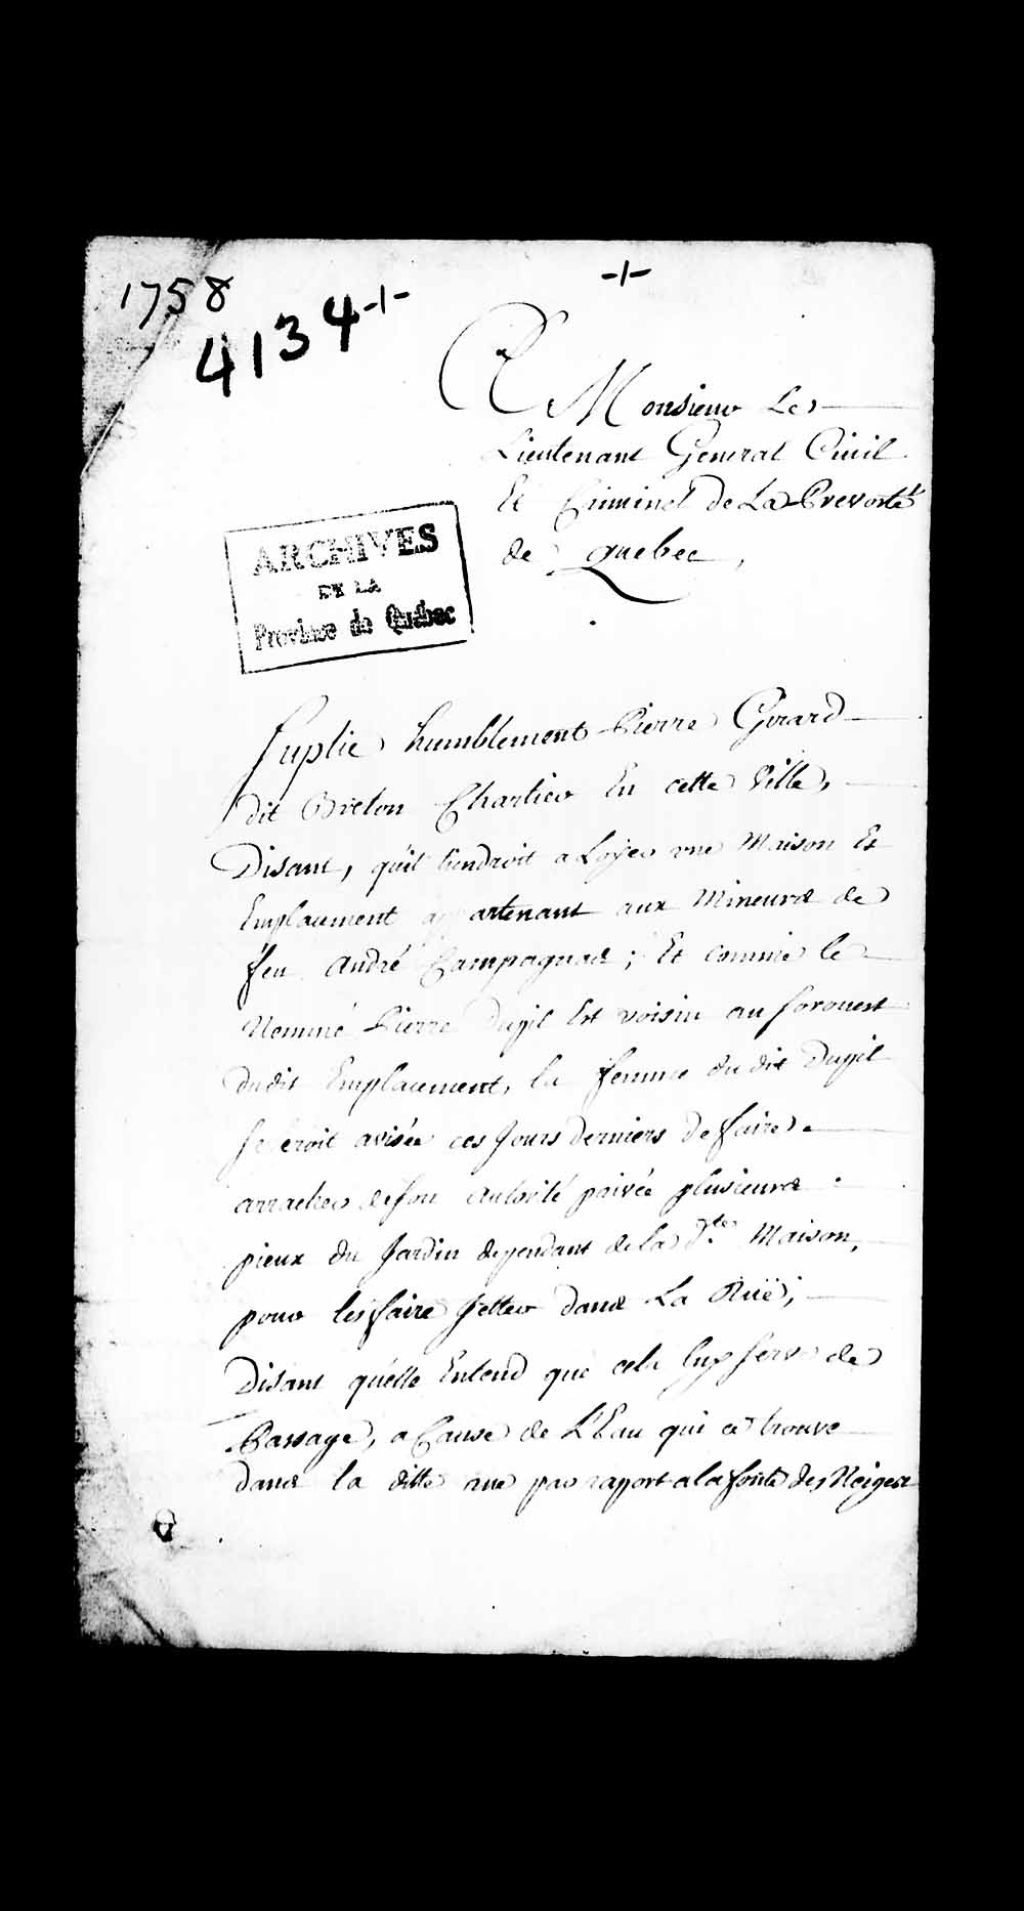 1758
4134 -/-
-/-
A Monsieur Le
Lieutenant General Civil
Et Criminel de La Prevosté
de Quebec,
ARCHIVES
DE LA
Province de Québec
Suplie humblement Pierre Girard
dit Breton Chartier En cette Ville,
Disant, qu'il tiendroit a Loyer une Maison Et
Emplacement appartenant aux Mineurs de
feu André Campagnas ; Et comme le
Nommé Pierre Dugil Est voisin au sorouest
dudit Emplacement, la femme du dit Dugil
se croit avisée ces Jours derniers de faire
arracher de son autorité privée plusieurs
pieux du Jardin dependant de la d.te Maison,
pour les faire Jetter dans La Rüe ;
Disant qu'elle Entend que cela luy serve de
Passage, a Cause de L'Eau qui ce trouve
dans la ditte rue par raport a la fonte des Neiges